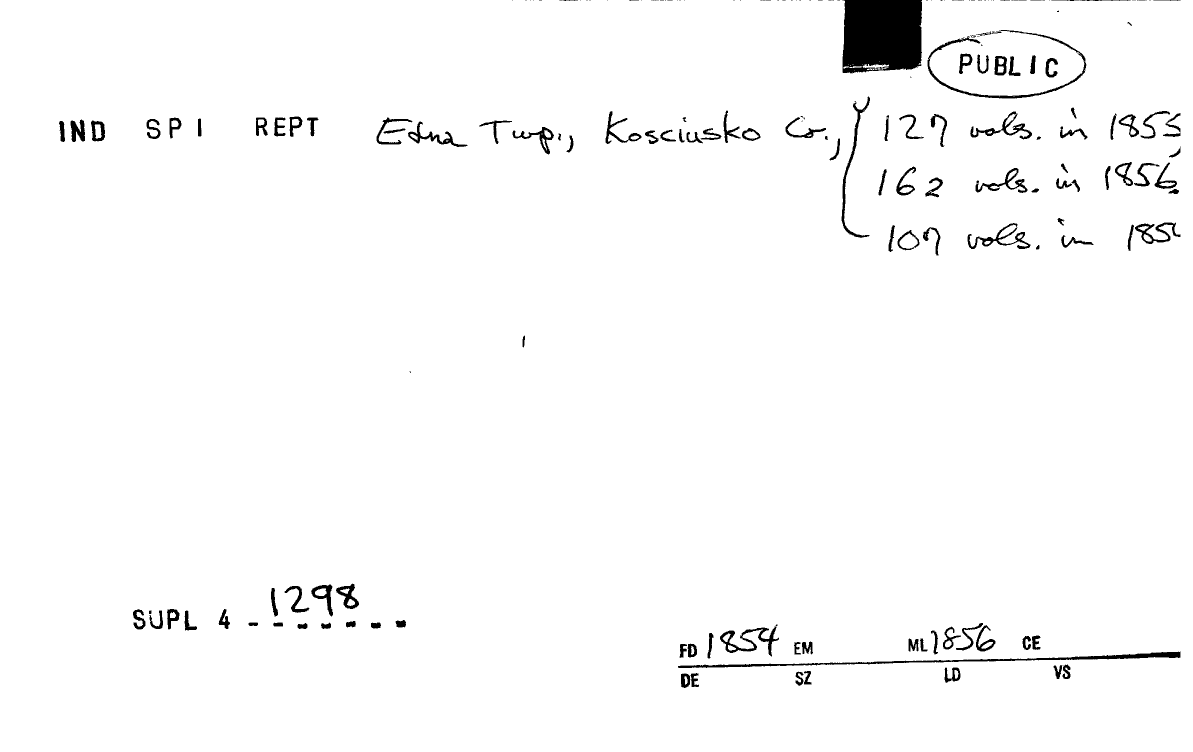 PUBLIC
IND SPI REPT Edna Twp., Kosciusko Co., { 127 vols. in 1855,
162 vols. in 1856,
107 vols. in
SUPL 4 1298
FD 1854 EM ML 1856 CE
DE SZ LD VS